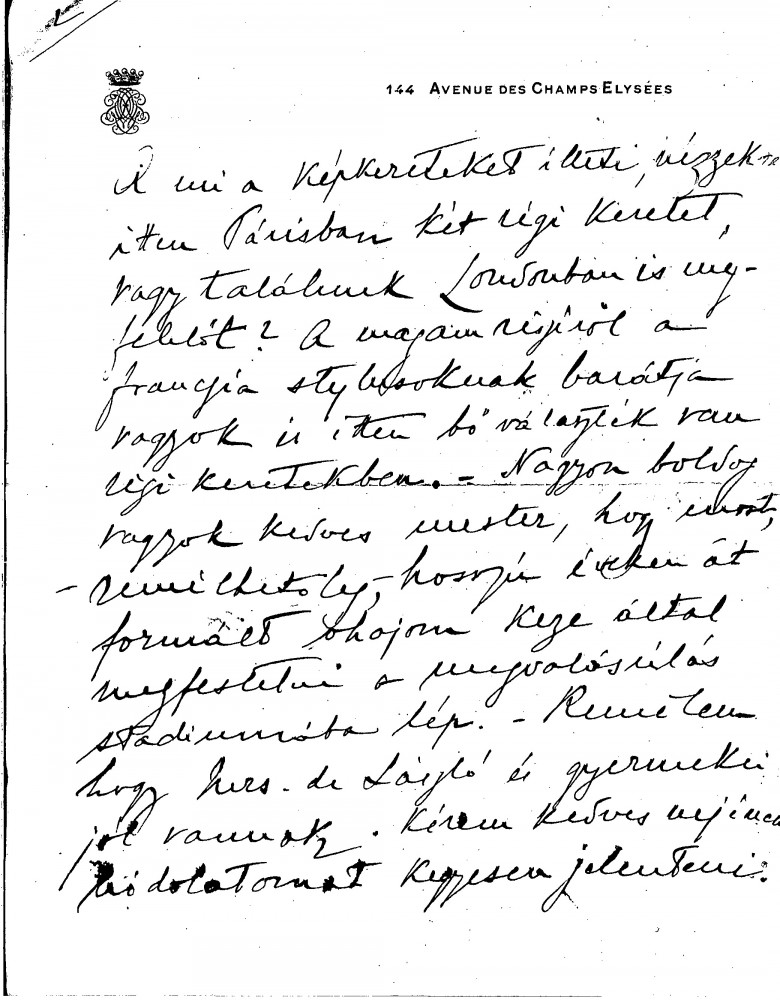 144 AVENUE DES CHAMPS ELYSÉES
A mi a képkereteket illeti, nézzek
itten Párisban két régi keretet,
vagy találunk Londonban is meg-
felelőt? A magam részéről a
francia stylusoknak barátja
vagyok és itten bő választék van
régi keretekben. – Nagyon boldog
vagyok kedves mester, hogy most,
– remélhetőleg, – hosszú éveken át
formált óhajom keze által
megfestetni a megvalósúlás
stádiumába lép. – Remélem
hogy Mrs. de László és gyermekei
jól vannak. Kérem kedves nejének
hódolatomat kegyesen jelenteni.